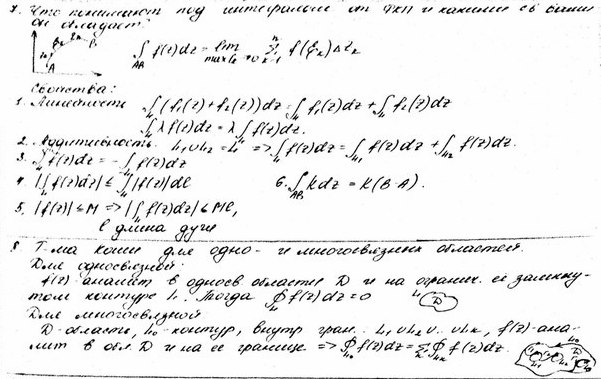 7. Что понимают под интегралом от ФКП и какими св-вами
он обладает?
∫_{AB} f(z)dz = lim_{max l_k→0} Σ_{k=1}^{n} f(ξ_k)Δz_k
A
Свойства:
1. Линейность ∫_L (f₁(z)+f₂(z))dz = ∫_L f₁(z)dz + ∫_L f₂(z)dz
∫_L λf(z)dz = λ∫_L f(z)dz.
2. Аддитивность. L₁∪L₂=L => ∫_L f(z)dz = ∫_{L₁} f(z)dz + ∫_{L₂} f(z)dz.
3. ∫ f(z)dz = -∫ f(z)dz
4. |∫_L f(z)dz| ≤ ∫_L |f(z)|dl 6. ∫_{AB} kdz = K(B-A).
5. |f(z)| ≤ M => |∫_L f(z)dz| ≤ Ml,
l длина дуги
8. Т-ма Коши для одно- и многосвязных областей.
Для односвязной:
f(z)-аналит в односв. области D и на огранич. ее замкну-
том контуре L. Тогда ∮_L f(z)dz = 0 L D
Для многосвязной
D-область, L₀-контур, внутр гран. L₁∪L₂∪..∪L_k, f(z)-ана-
лит в обл. D и на ее границе => ∮_{L₀} f(z)dz = Σ_k ∮_{L_k} f(z)dz.